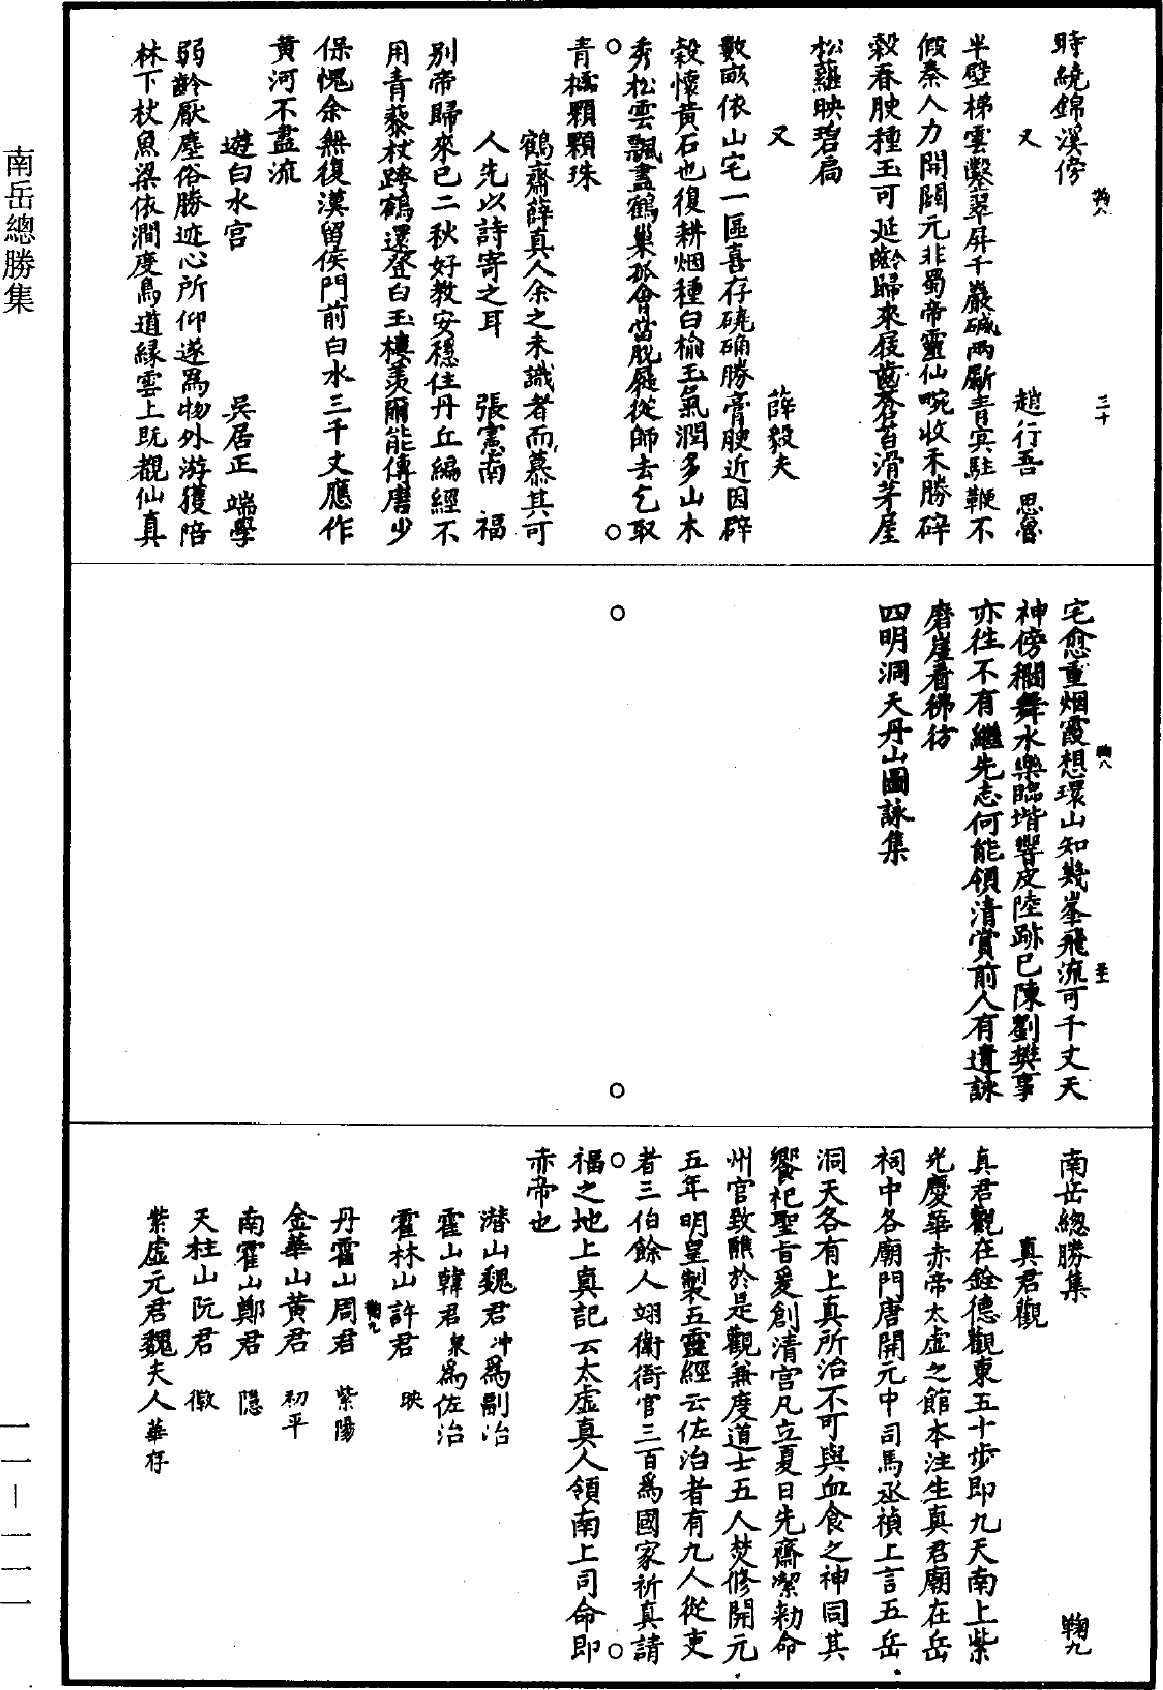 時繞錦溪傍
又　趙行吾　思魯
半壁梯雲鑿翠屏千巖磩兩厮青宾駐鞭不
假秦人力開闢元非蜀帝靈仙畹收禾勝碎
穀春腴種玉可延齡歸來屐齒蒼苔滑茅屋
松蘿映碧扃
又　薛毅夫
數畝依山宅一區喜存磽确勝膏腴近因辟
穀懷黃石也復耕烟種白榆玉氣潤多山木
秀松雲飄盡鶴巢孤會當脫屣從師去乞取
青櫺顆顆珠
鶴齋薛真人余之未識者而慕其可
人先以詩寄之耳　張憲南　福
別帝歸來已二秋好教安穩住丹丘編經不
用青藜杖跨鶴還登白玉樓羡爾能傳唐少
保愧余無復漢留侯門前白水三千丈應作
黃河不盡流
遊白水宮　吳居正　端學
弱齡厭塵俗勝迹心所仰遂爲物外游獲陪
林下杖魚梁依澗度鳥道緣雲上既覩仙真
鞠八　三十
宅愈重烟霞想環山知幾峯飛流可千丈天
神傍欄舞水樂臨堦響皮陸跡已陳劉樊事
亦往不有繼先志何能領清賞前人有遺詠
磨崖看彿彷
四明洞天丹山圖詠集
鞠八　三十一
南岳總勝集　鞠九
真君觀
真君觀在銓德觀東五十步即九天南上紫
光慶華赤帝太虛之館本注生真君廟在岳
祠中各廟門唐開元中司馬丞禎上言五岳
洞天各有上真所治不可與血食之神同其
饗祀聖旨爰創清宮凡立夏日先齋潔勑命
州官致醮於是觀兼度道士五人焚修開元
五年明皇製五靈經云佐治者有九人從吏
者三伯餘人翊衛衙官三百爲國家祈真請
福之地上真記云太虛真人領南上司命即
赤帝也
潜山魏君冲爲副治
霍山韓君衆爲佐治
霍林山許君　映
鞠九
丹霍山周君　紫陽
金華山黃君　初平
南霍山鄭君　隱
天柱山阮君　徹
紫虛元君魏夫人華存
南岳總勝集
一一—一一一